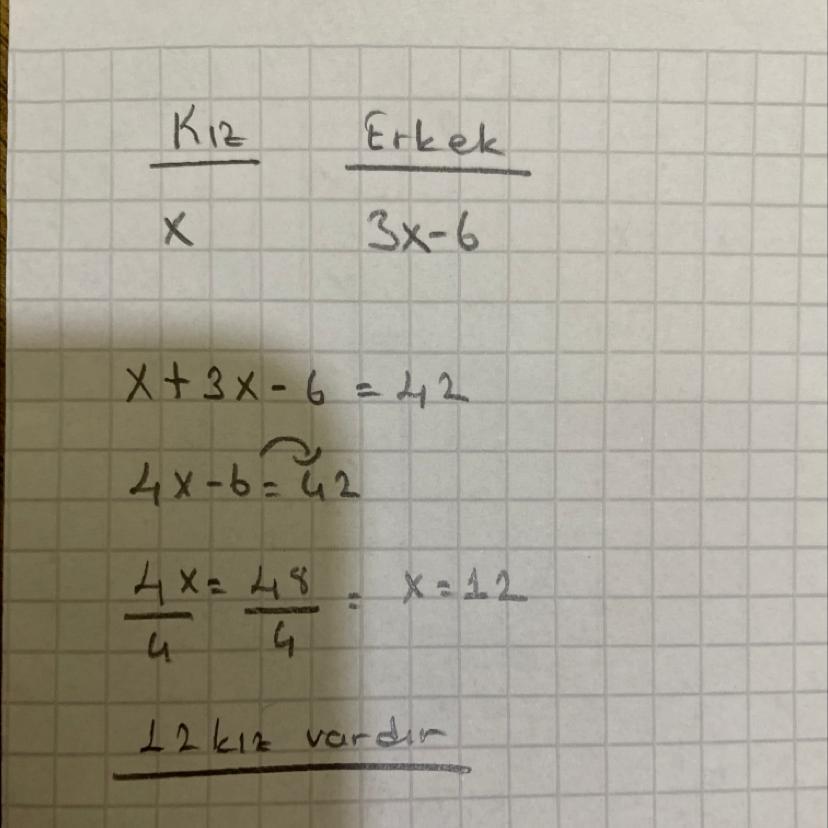 Kız Erkek
x 3x-6
x+3x-6=42
4x-6=42
4x/4=48/4= x=12
12 kız vardır